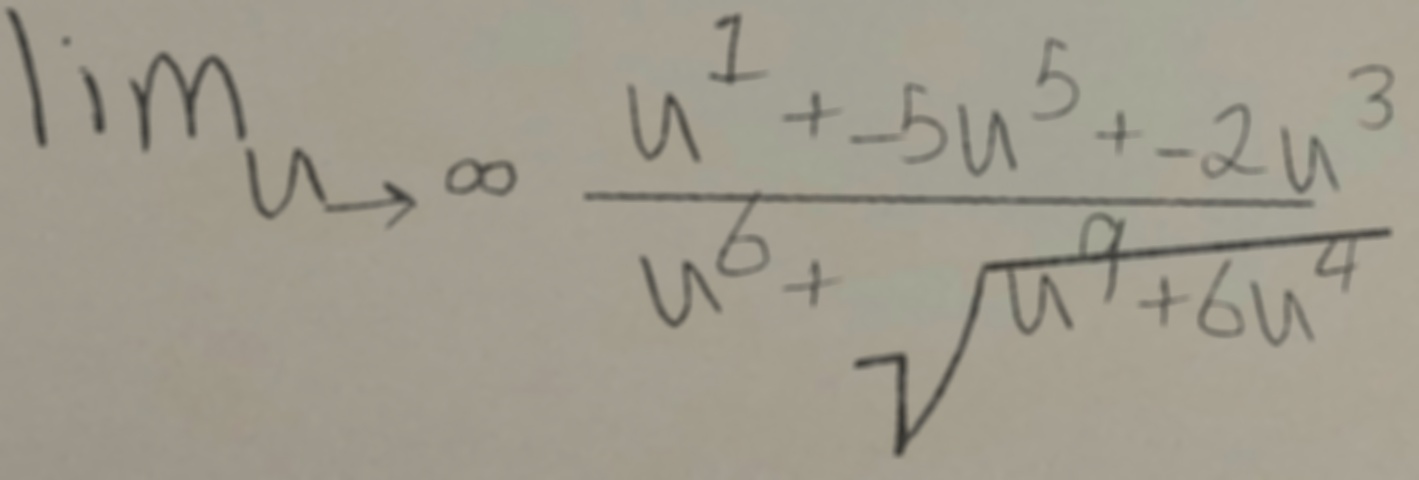 \lim_{u \to \infty} \frac{u^1 + -5u^5 + -2u^3}{u^6 + \sqrt{u^9 + 6u^4}}